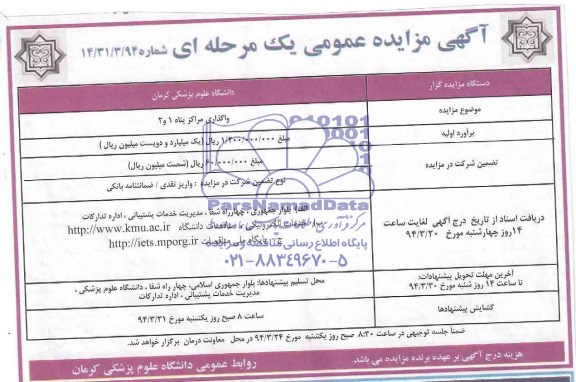 آگهی مزایده عمومی یک مرحله ای شماره ۱۴/۳۱/۳/۹۴
دستگاه مزایده گزار
دانشگاه علوم پزشکی کرمان
موضوع مزایده
واگذاری مراکز پناه ۱ و۲
برآورد اولیه
مبلغ ۱/۲۰۰/۰۰۰/۰۰۰ ریال (یک میلیارد و دویست میلیون ریال)
تضمین شرکت در مزایده
مبلغ ۶۰/۰۰۰/۰۰۰ ریال (شصت میلیون ریال)
نوع تضمین شرکت در مزایده : واریز نقدی / ضمانتنامه بانکی
دریافت اسناد از تاریخ درج آگهی لغایت ساعت
۱۴روز چهارشنبه مورخ ۹۴/۳/۲۰
الف) بلوار جمهوری ، چهارراه شفا ، مدیریت خدمات پشتیبانی ، اداره تدارکات
دانشگاه http://www.kmu.ac.ir
http://iets.mporg.ir
ParsNamadData
پایگاه اطلاع رسانی
۰۲۱-۸۸۳۴۹۶۷۰-۵
آخرین مهلت تحویل پیشنهادات:
تا ساعت ۱۴ روز شنبه مورخ ۹۴/۳/۳۰
محل تسلیم پیشنهادها: بلوار جمهوری اسلامی، چهار راه شفا ، دانشگاه علوم پزشکی ،
مدیریت خدمات پشتیبانی ، اداره تدارکات
گشایش پیشنهادها
ساعت ۸ صبح روز یکشنبه مورخ ۹۴/۳/۳۱
ضمنا جلسه توجیهی در ساعت ۸:۳۰ صبح روز یکشنبه مورخ ۹۴/۳/۲۴ در محل معاونت درمان برگزار خواهد شد.
هزینه درج آگهی بر عهده برنده مزایده می باشد
روابط عمومی دانشگاه علوم پزشکی کرمان